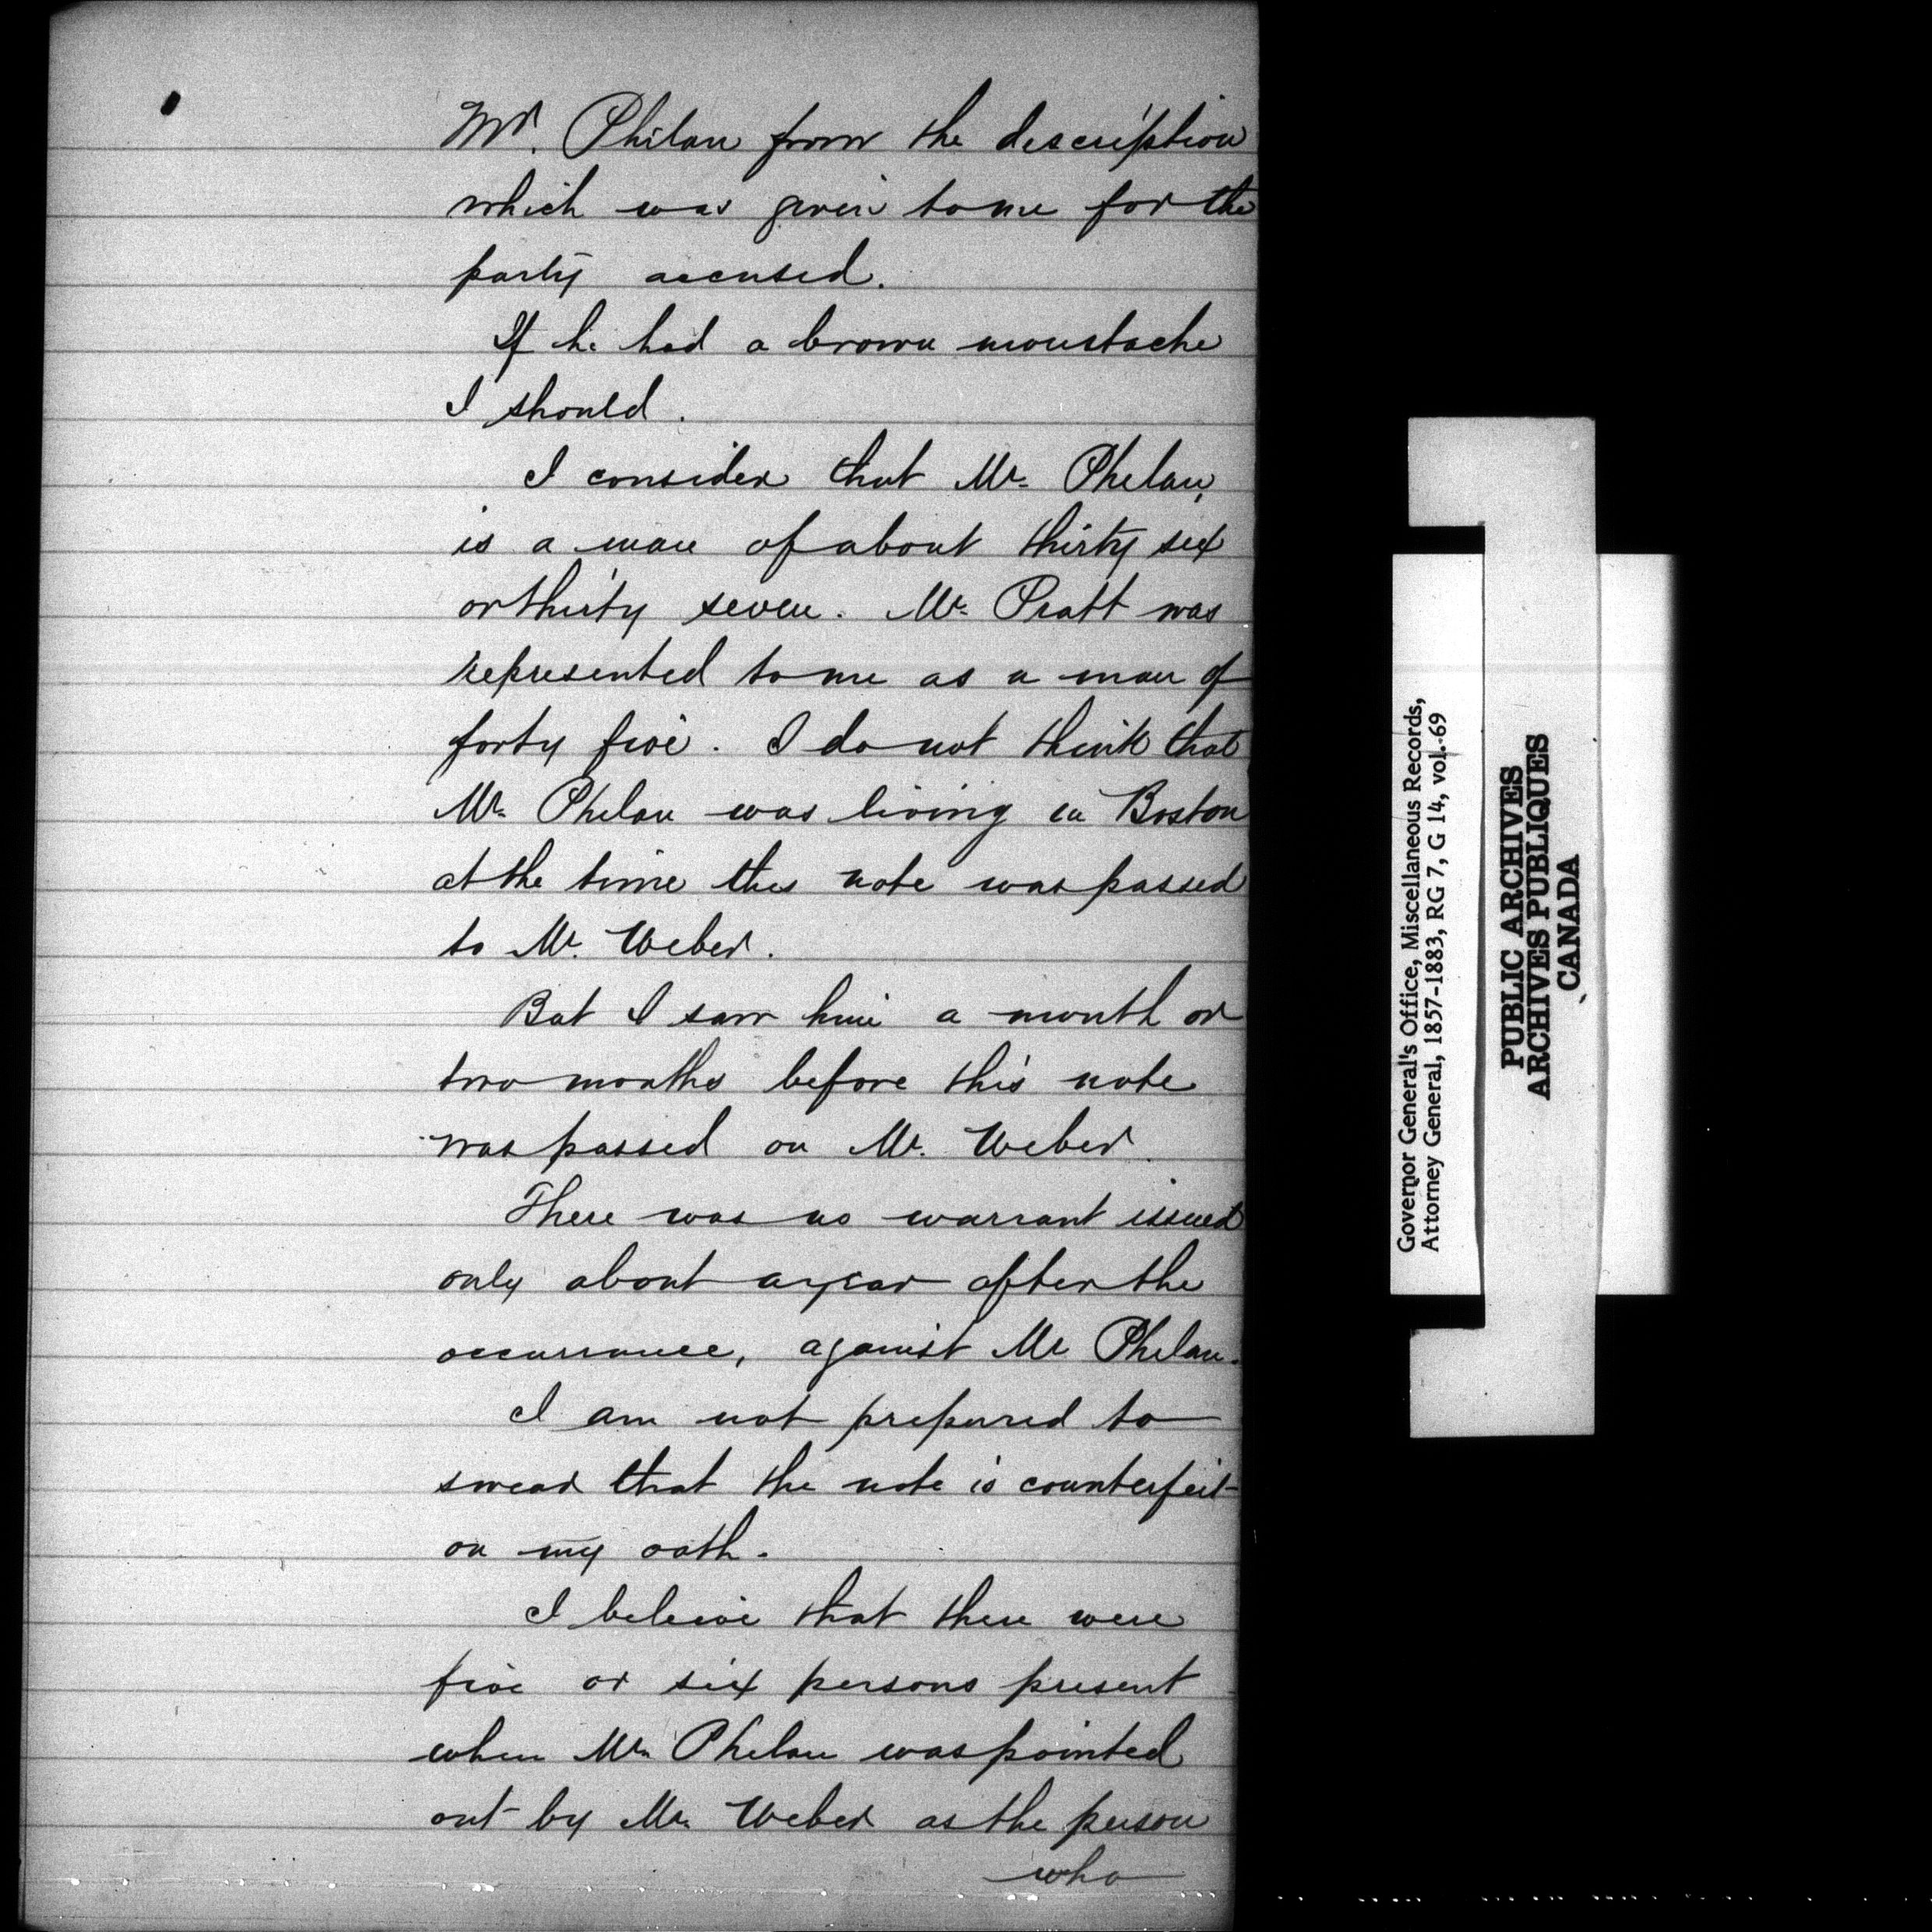 Mr. Phelan from the description
which was given to me for the
party accused.
If he had a brown moustache
I should.
I consider that Mr. Phelan,
is a man of about thirty six
or thirty seven. Mr. Pratt was
represented to me as a man of
forty five. I do not think that
Mr. Phelan was living in Boston
at the time this note was passed
to Mr. Weber.
But I saw him a month or
two months before this note
was passed on Mr. Weber.
There was no warrant issued
only about a year after the
occurrance, against Mr Phelan.
I am not prepared to
swear that the note is counterfeit
on my oath.
I beleive that there were
five or six persons present
when Mr. Phelan was pointed
out by Mr. Weber as the person
who
Governor General's Office, Miscellaneous Records,
Attorney General, 1857-1883, RG 7, G 14, vol. 69
PUBLIC ARCHIVES
ARCHIVES PUBLIQUES
CANADA